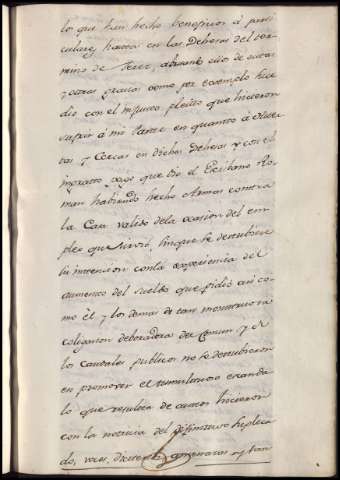 lo que han hecho beneficios á parti
culares, hacia en las Dehesas del ter
mino de Jerez, abusando ellos de estas
y otras gracias como por exemplo huce
dio con el injusto pleito que hicieron
sufrir á mi Parte en quanto á
tas y Cercas en dichas Dehesas y con el
ingrato pago que dio el Escribano Ro
man habiendo hecho Armas contra
la Casa valido dela ocasion del em
pleo que sirvio, sinque se descubriese
su intencion conla experiencia del
aumento del sueldo que pidió asi co
mo él y los demas de tan monstruosa
coligacion deboradora del Comun y de
los caudales publicos no se descubrieron
en promover el tumultuoso escanda
lo que resultia de autos hicieron
con la noticia del
do, voces, y tan